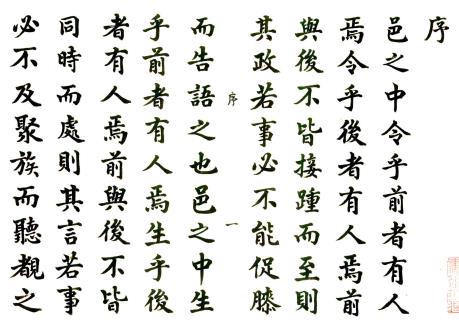 序
邑之中令乎前者有人
焉令乎後者有人焉前
與後不皆接踵而至則
其政若事必不能促膝
序
一
而告語之也邑之中生
乎前者有人焉生乎後
者有人焉前與後不皆
同時而處則其言若事
必不及聚族而聽覩之